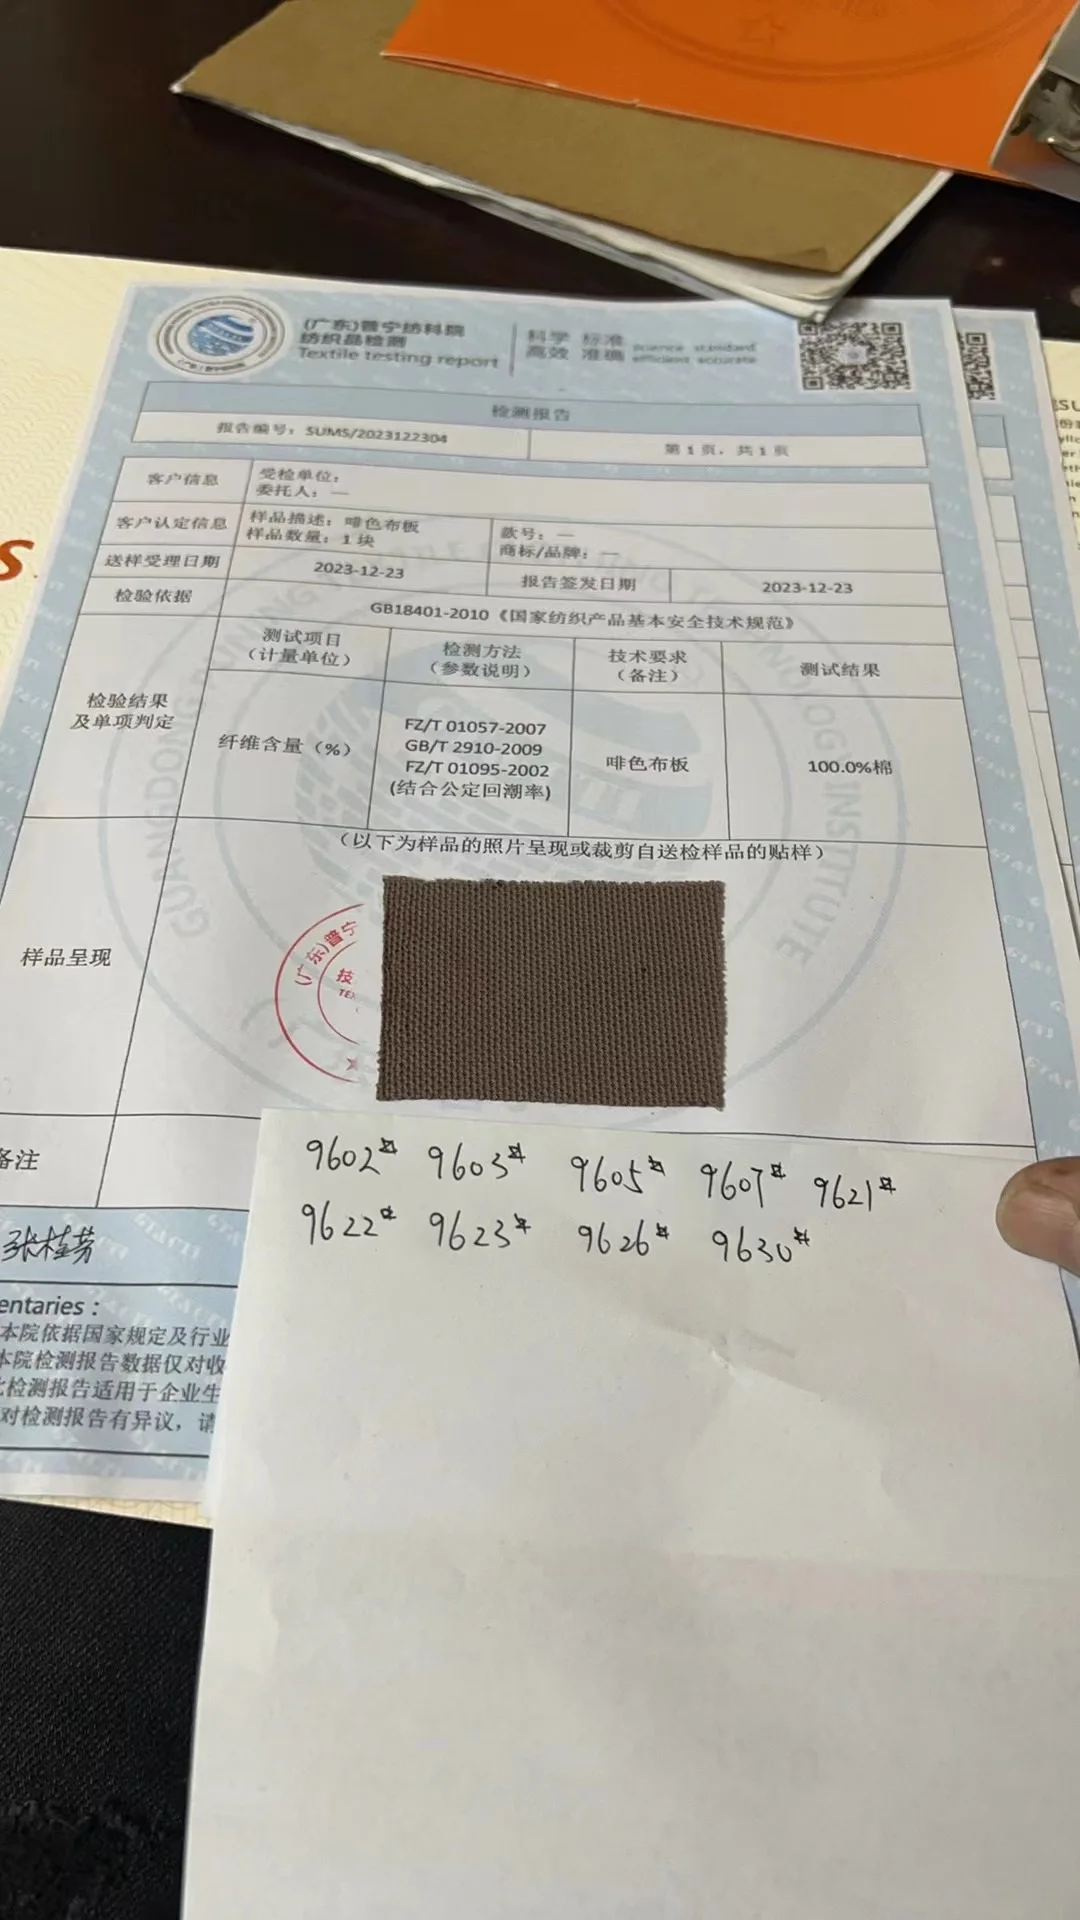 (广东)普宁纺科院
纺织品检测
Textile testing report
科学 标准 science standard
高效 准确 efficient accurate
检测报告
报告编号：SUMS/2023122304
第 1 页，共 1 页
客户信息
受检单位：
委托人：—
客户认定信息
样品描述：啡色布板
样品数量：1 块
款号：—
商标/品牌：—
送样受理日期
2023-12-23
报告签发日期
2023-12-23
检验依据
GB18401-2010《国家纺织产品基本安全技术规范》
检验结果
及单项判定
测试项目
（计量单位）
检测方法
（参数说明）
技术要求
（备注）
测试结果
纤维含量（%）
FZ/T 01057-2007
GB/T 2910-2009
FZ/T 01095-2002
(结合公定回潮率)
啡色布板
100.0%棉
（以下为样品的照片呈现或裁剪自送检样品的贴样）
样品呈现
(广东)普宁
技
TEX
备注
9602# 9603# 9605# 9607# 9621#
9622# 9623# 9626# 9630#
张桂芳
entaries：
本院依据国家规定及行业
本院检测报告数据仅对收
检测报告适用于企业生
对检测报告有异议，请
INSTITUTE